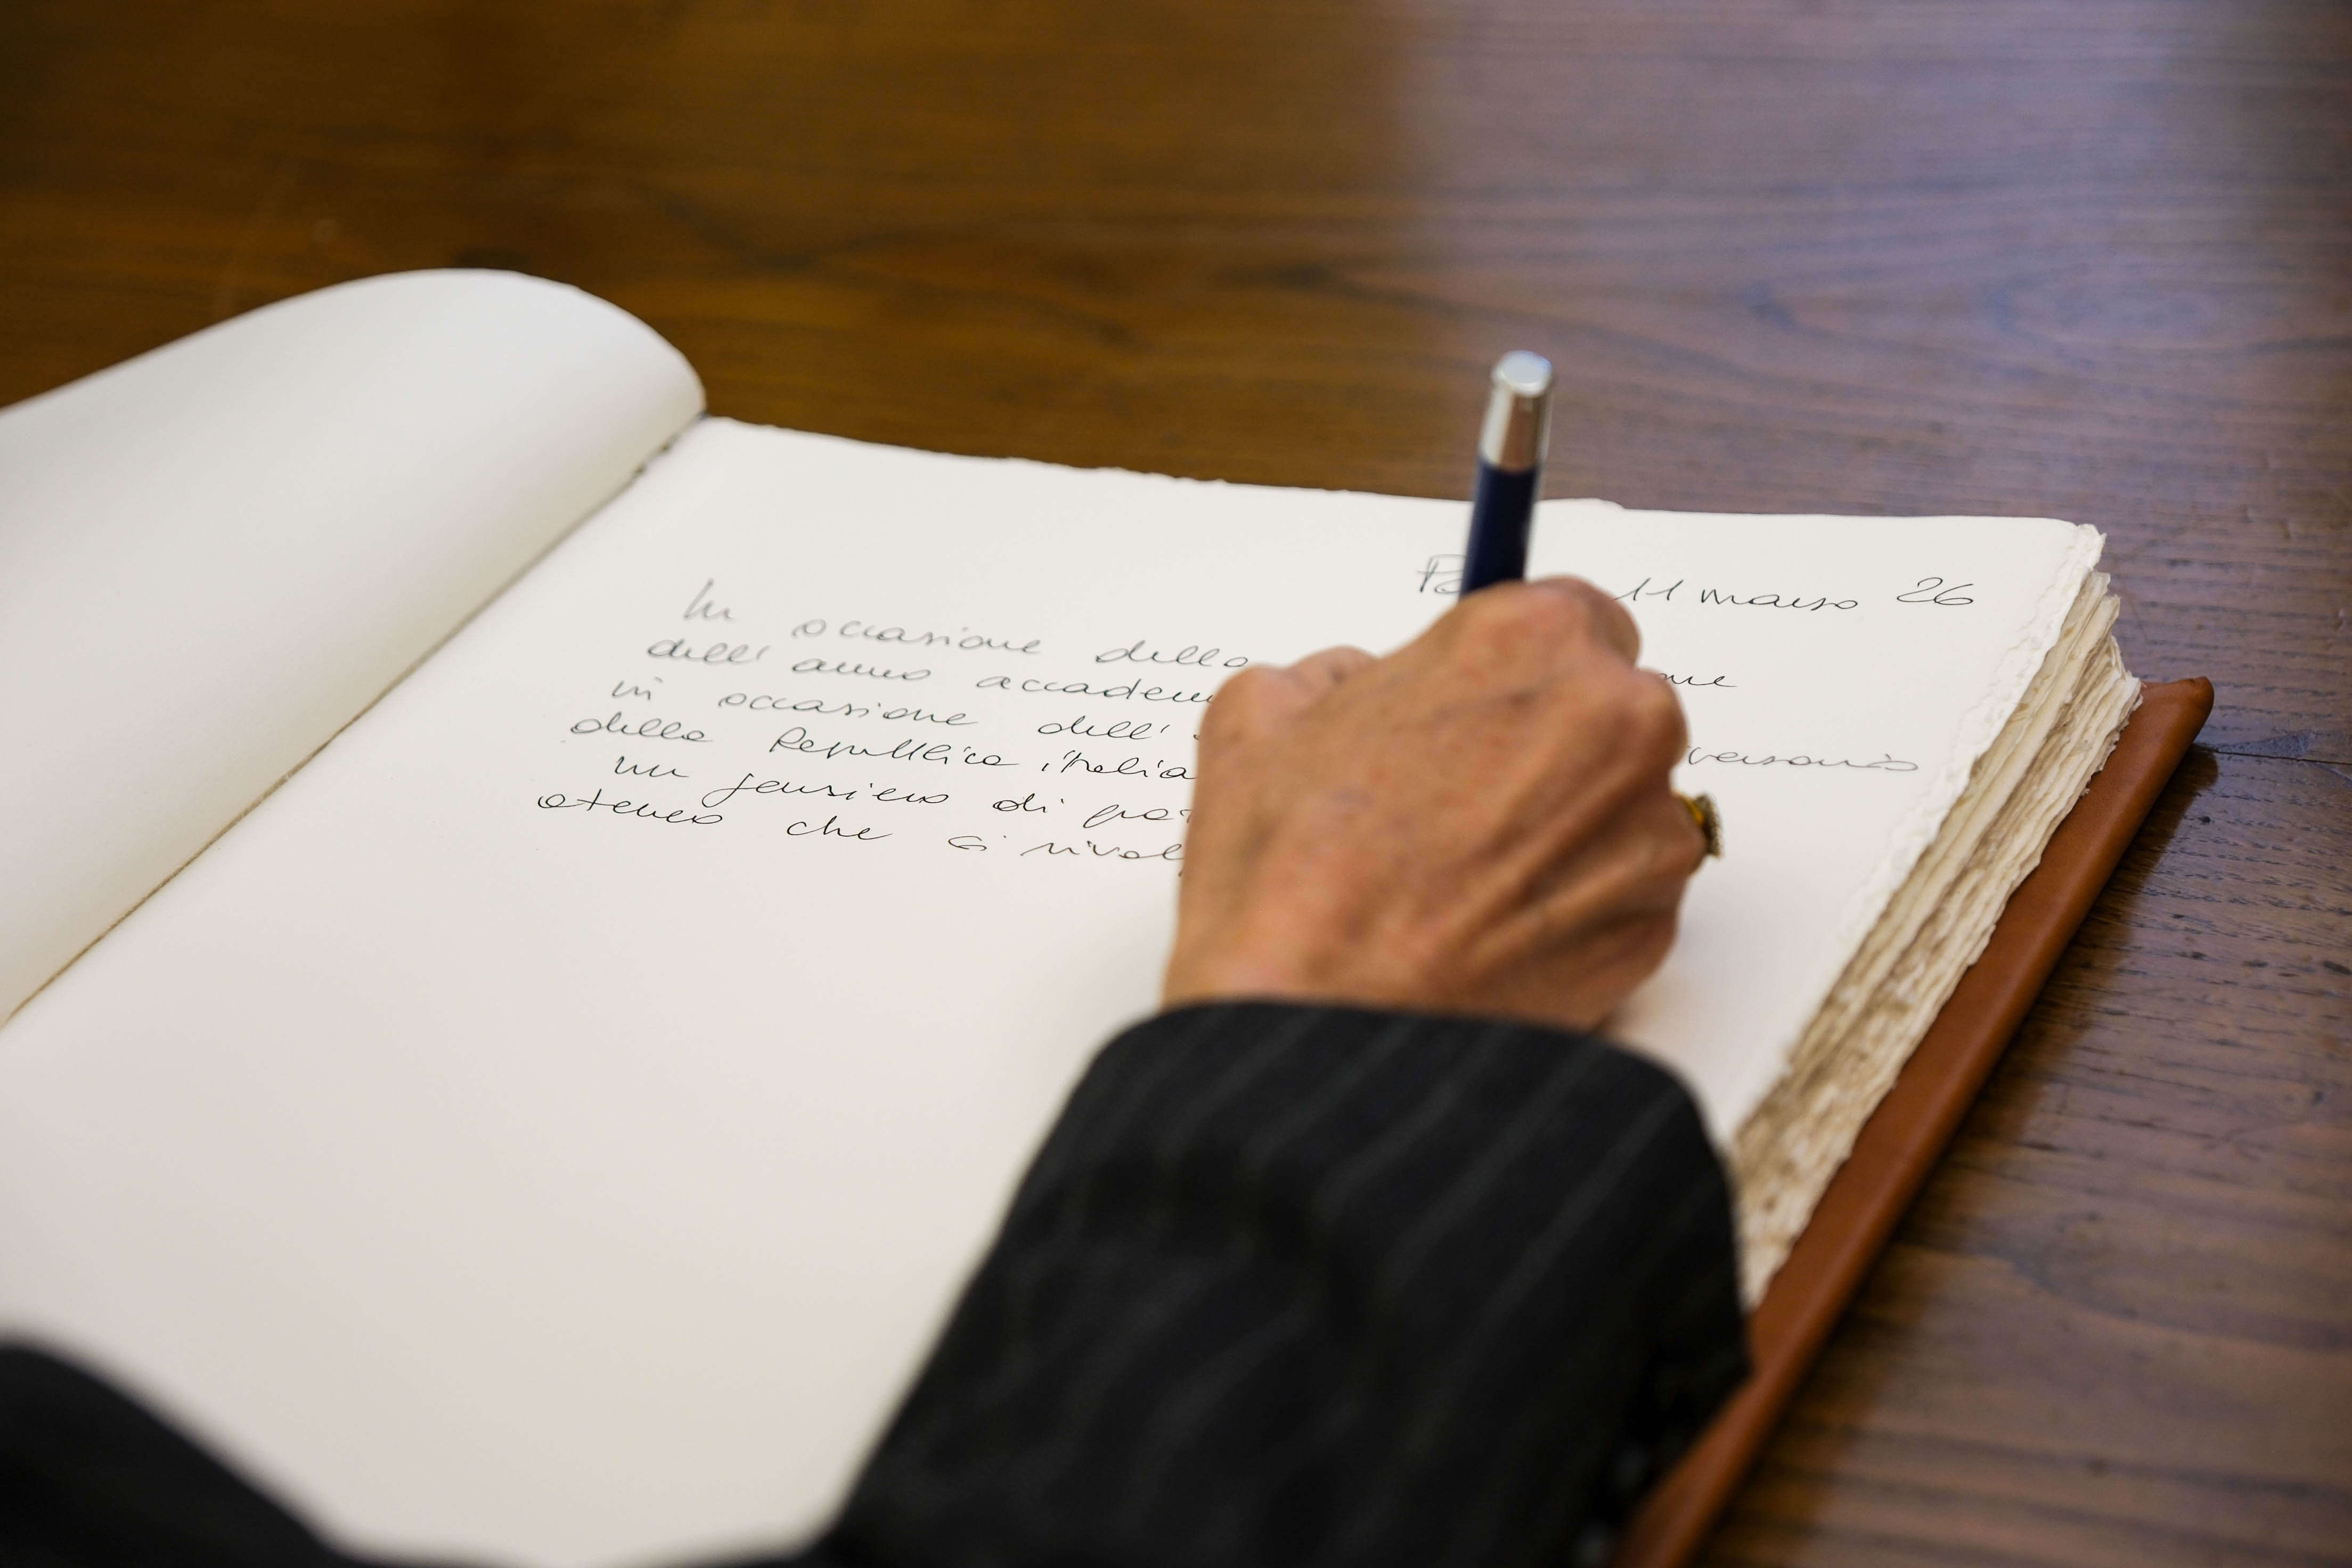 11 marzo 26
In occasione della
dell' anno accadem
in occasione dell' versario
della Repubblica italia
un pensiero di
ateneo che si rivol